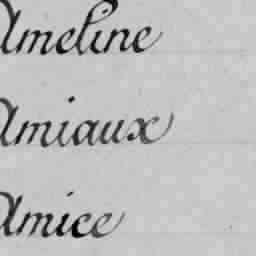 Ameline
Amiaux
Amice